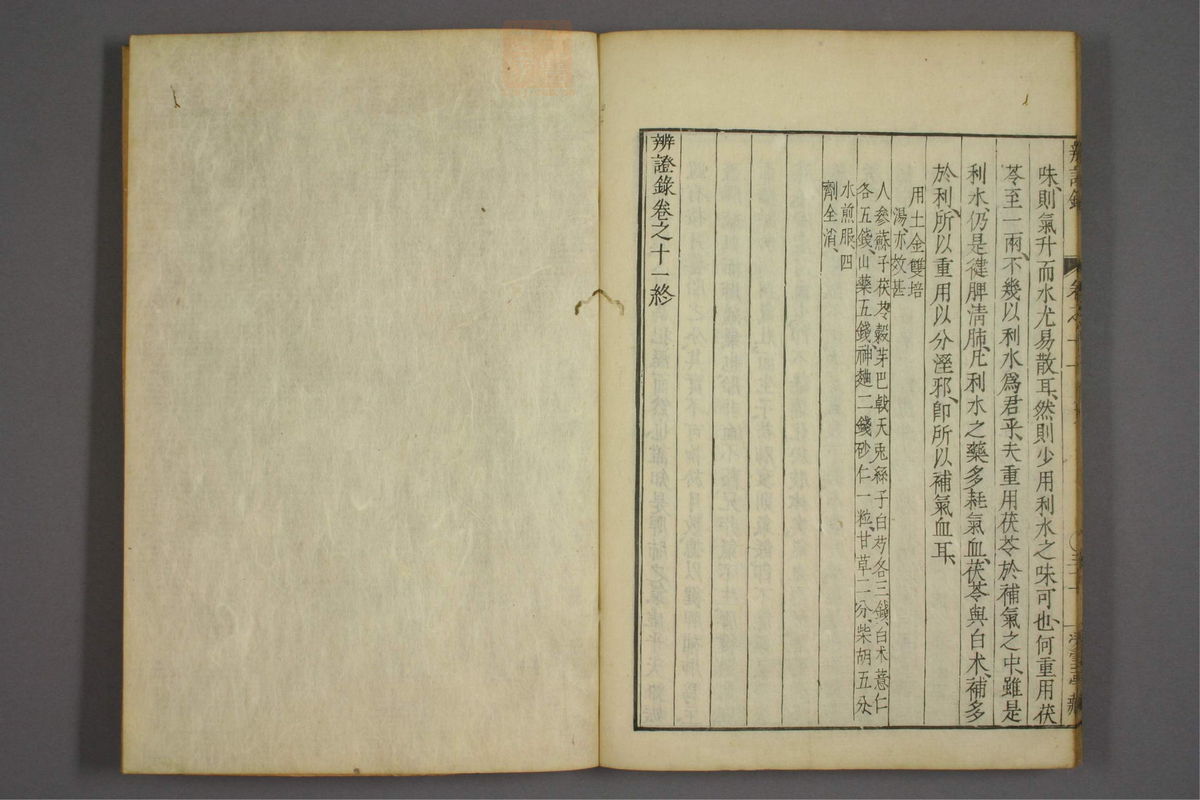 味、則氣升而水尤易散耳、然則少用利水之味可也、何重用茯
苓至一兩、不幾以利水爲君乎、夫重用茯苓於補氣之中、雖是
利水、仍是健脾淸肺、凡利水之藥多耗氣血、茯苓與白朮、補多
於利、所以重用以分溼邪、卽所以補氣血耳、
用土金雙培
湯、亦效甚
人參蘇子茯苓穀芽巴戟天兎絲子白芍各三錢、白朮薏仁
各五錢、山藥五錢、神麯二錢砂仁一粒、甘草二分、柴胡五分、
水煎服、四
劑全消、
辨證錄卷之十一終